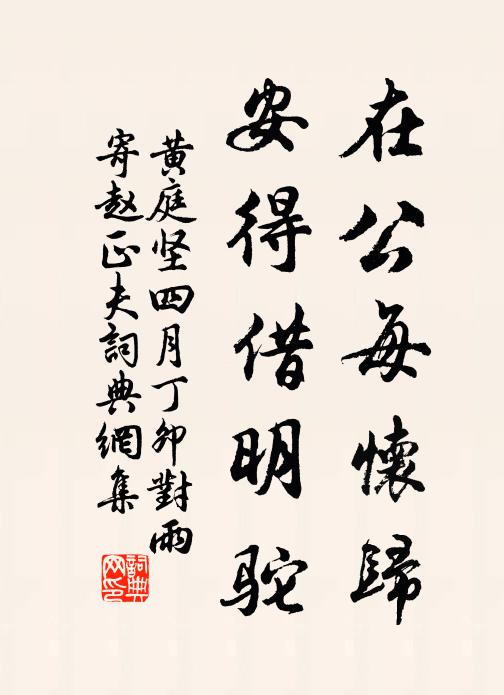 在公每懷歸
安得借明駝
黄庭坚四月丁卯對雨
寄赵正夫詞典網集
詞典网印